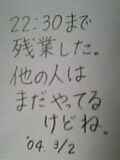 22:30まで
残業した。
他の人は
まだやってる
けどね。
'04. 3/2